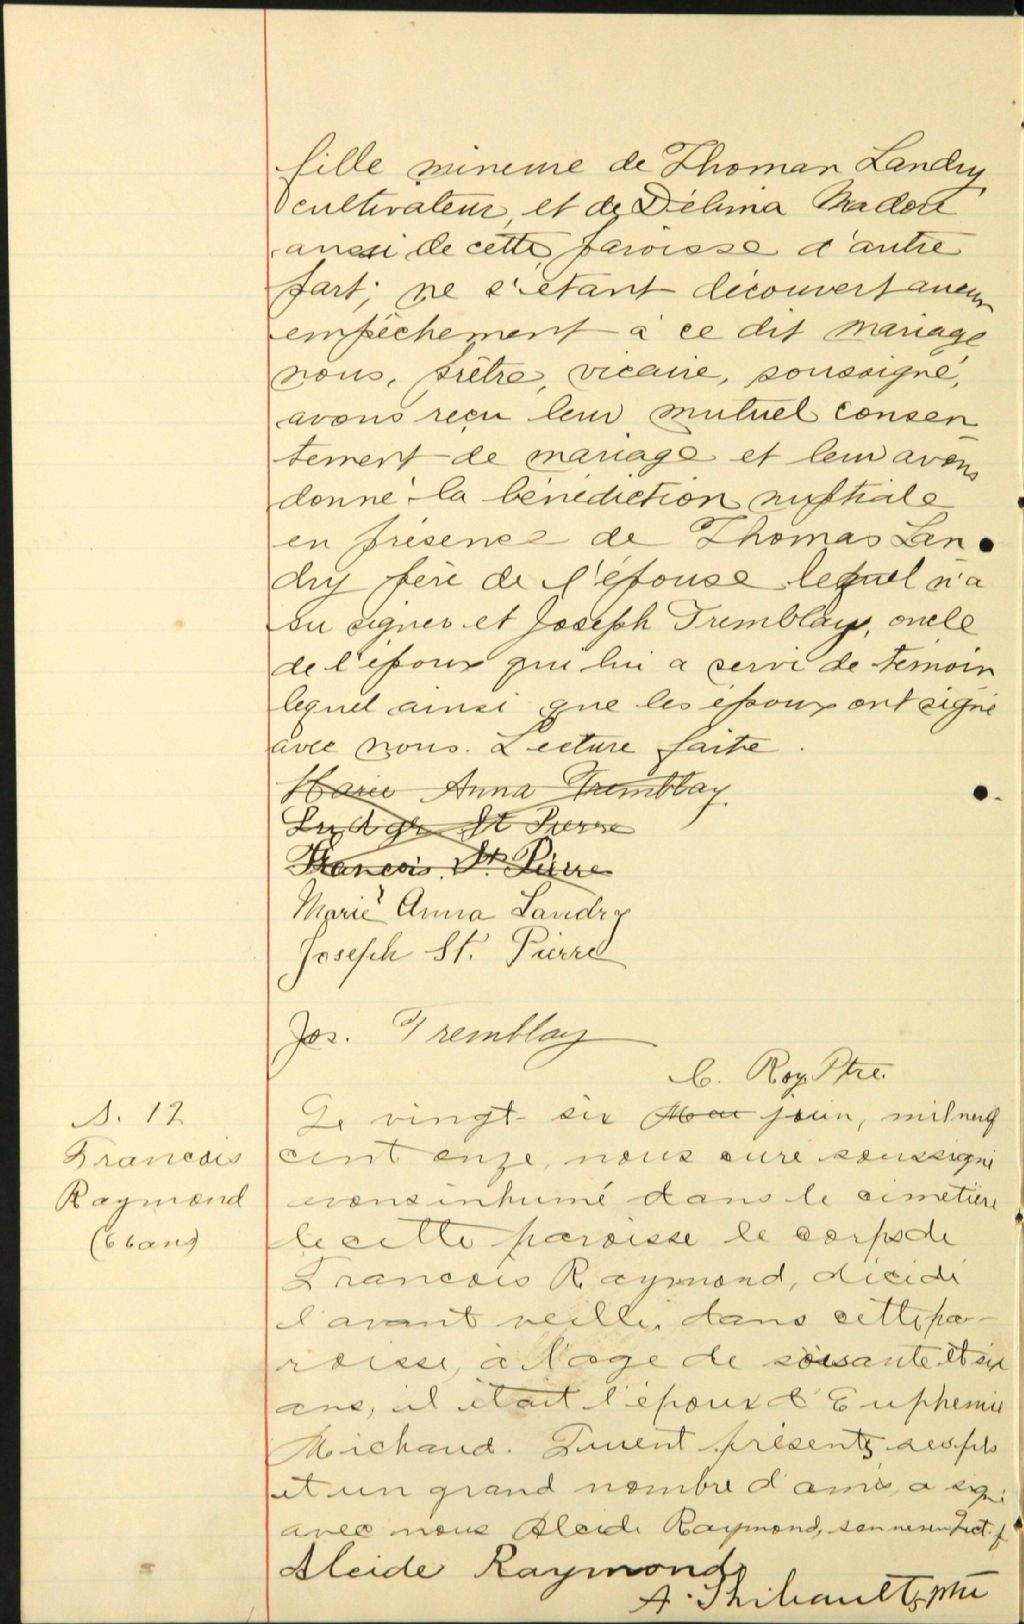 fille mineure de Thomas Landry
cultivateur, et de Délima Madore
aussi de cette paroisse d'autre
part; ne s'étant découvert aucun
empêchement à ce dit mariage
nous, prêtre, vicaire, soussigné,
avons reçu leur mutuel consen
tement de mariage et leur avons
donné la bénédiction nuptiale
en présence de Thomas Lan
dry père de l'épouse lequel n'a
su signer et Joseph Tremblay, oncle
de l'époux qui lui a servi de témoin
lequel ainsi que les époux ont signé
avec nous. Lecture faite.
Marie Anna Tremblay
Ludger St Pierre
François St. Pierre
Marie Anna Landry
Joseph St. Pierre
Jos. Tremblay
C. Roy Ptre.
S. 12
Francois
Raymond
(66 ans)
Le vingt six Mai juin, mil neuf
cent onze, nous curé soussigné
avons inhumé dans le cimetière
de cette paroisse le corps de
Francois Raymond, décédé
l'avant veille, dans cette pa-
roisse, à l'age de soixante et six
ans, il était l'époux d'Euphemie
Michaud. Furent présents ses fils
et un grand nombre d'amis, a signé
avec nous Alcide Raymond, son neveu Lect. f
Alcide Raymond
A. Thibault, ptre